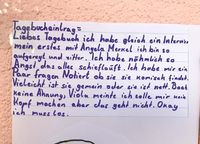 Tagebucheintrag=
Liebes Tagebuch ich habe gleich ein Interview
mein erstes mit Angela Merkel ich bin so
aufgeregt und zitter. Ich habe nähmlich so
Angst das alles schiefläuft. Ich habe mir ein
Paar fragen Notiert ob sie sie komisch findet.
Vieleicht ist sie gemein oder sie ist nett. Doch
keine Ahnung. Viola meinte ich solle mir kein
Kopf machen aber das geht nicht. Okay
ich muss los.